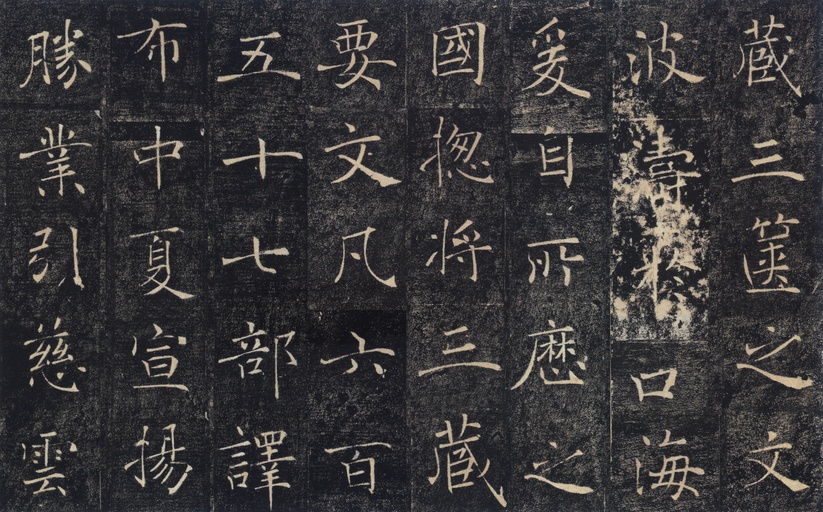 藏三篋之文
波濤於口海
爰自所歷之
國捴將三藏
要文凡六百
五十七部譯
布中夏宣揚
勝業引慈雲